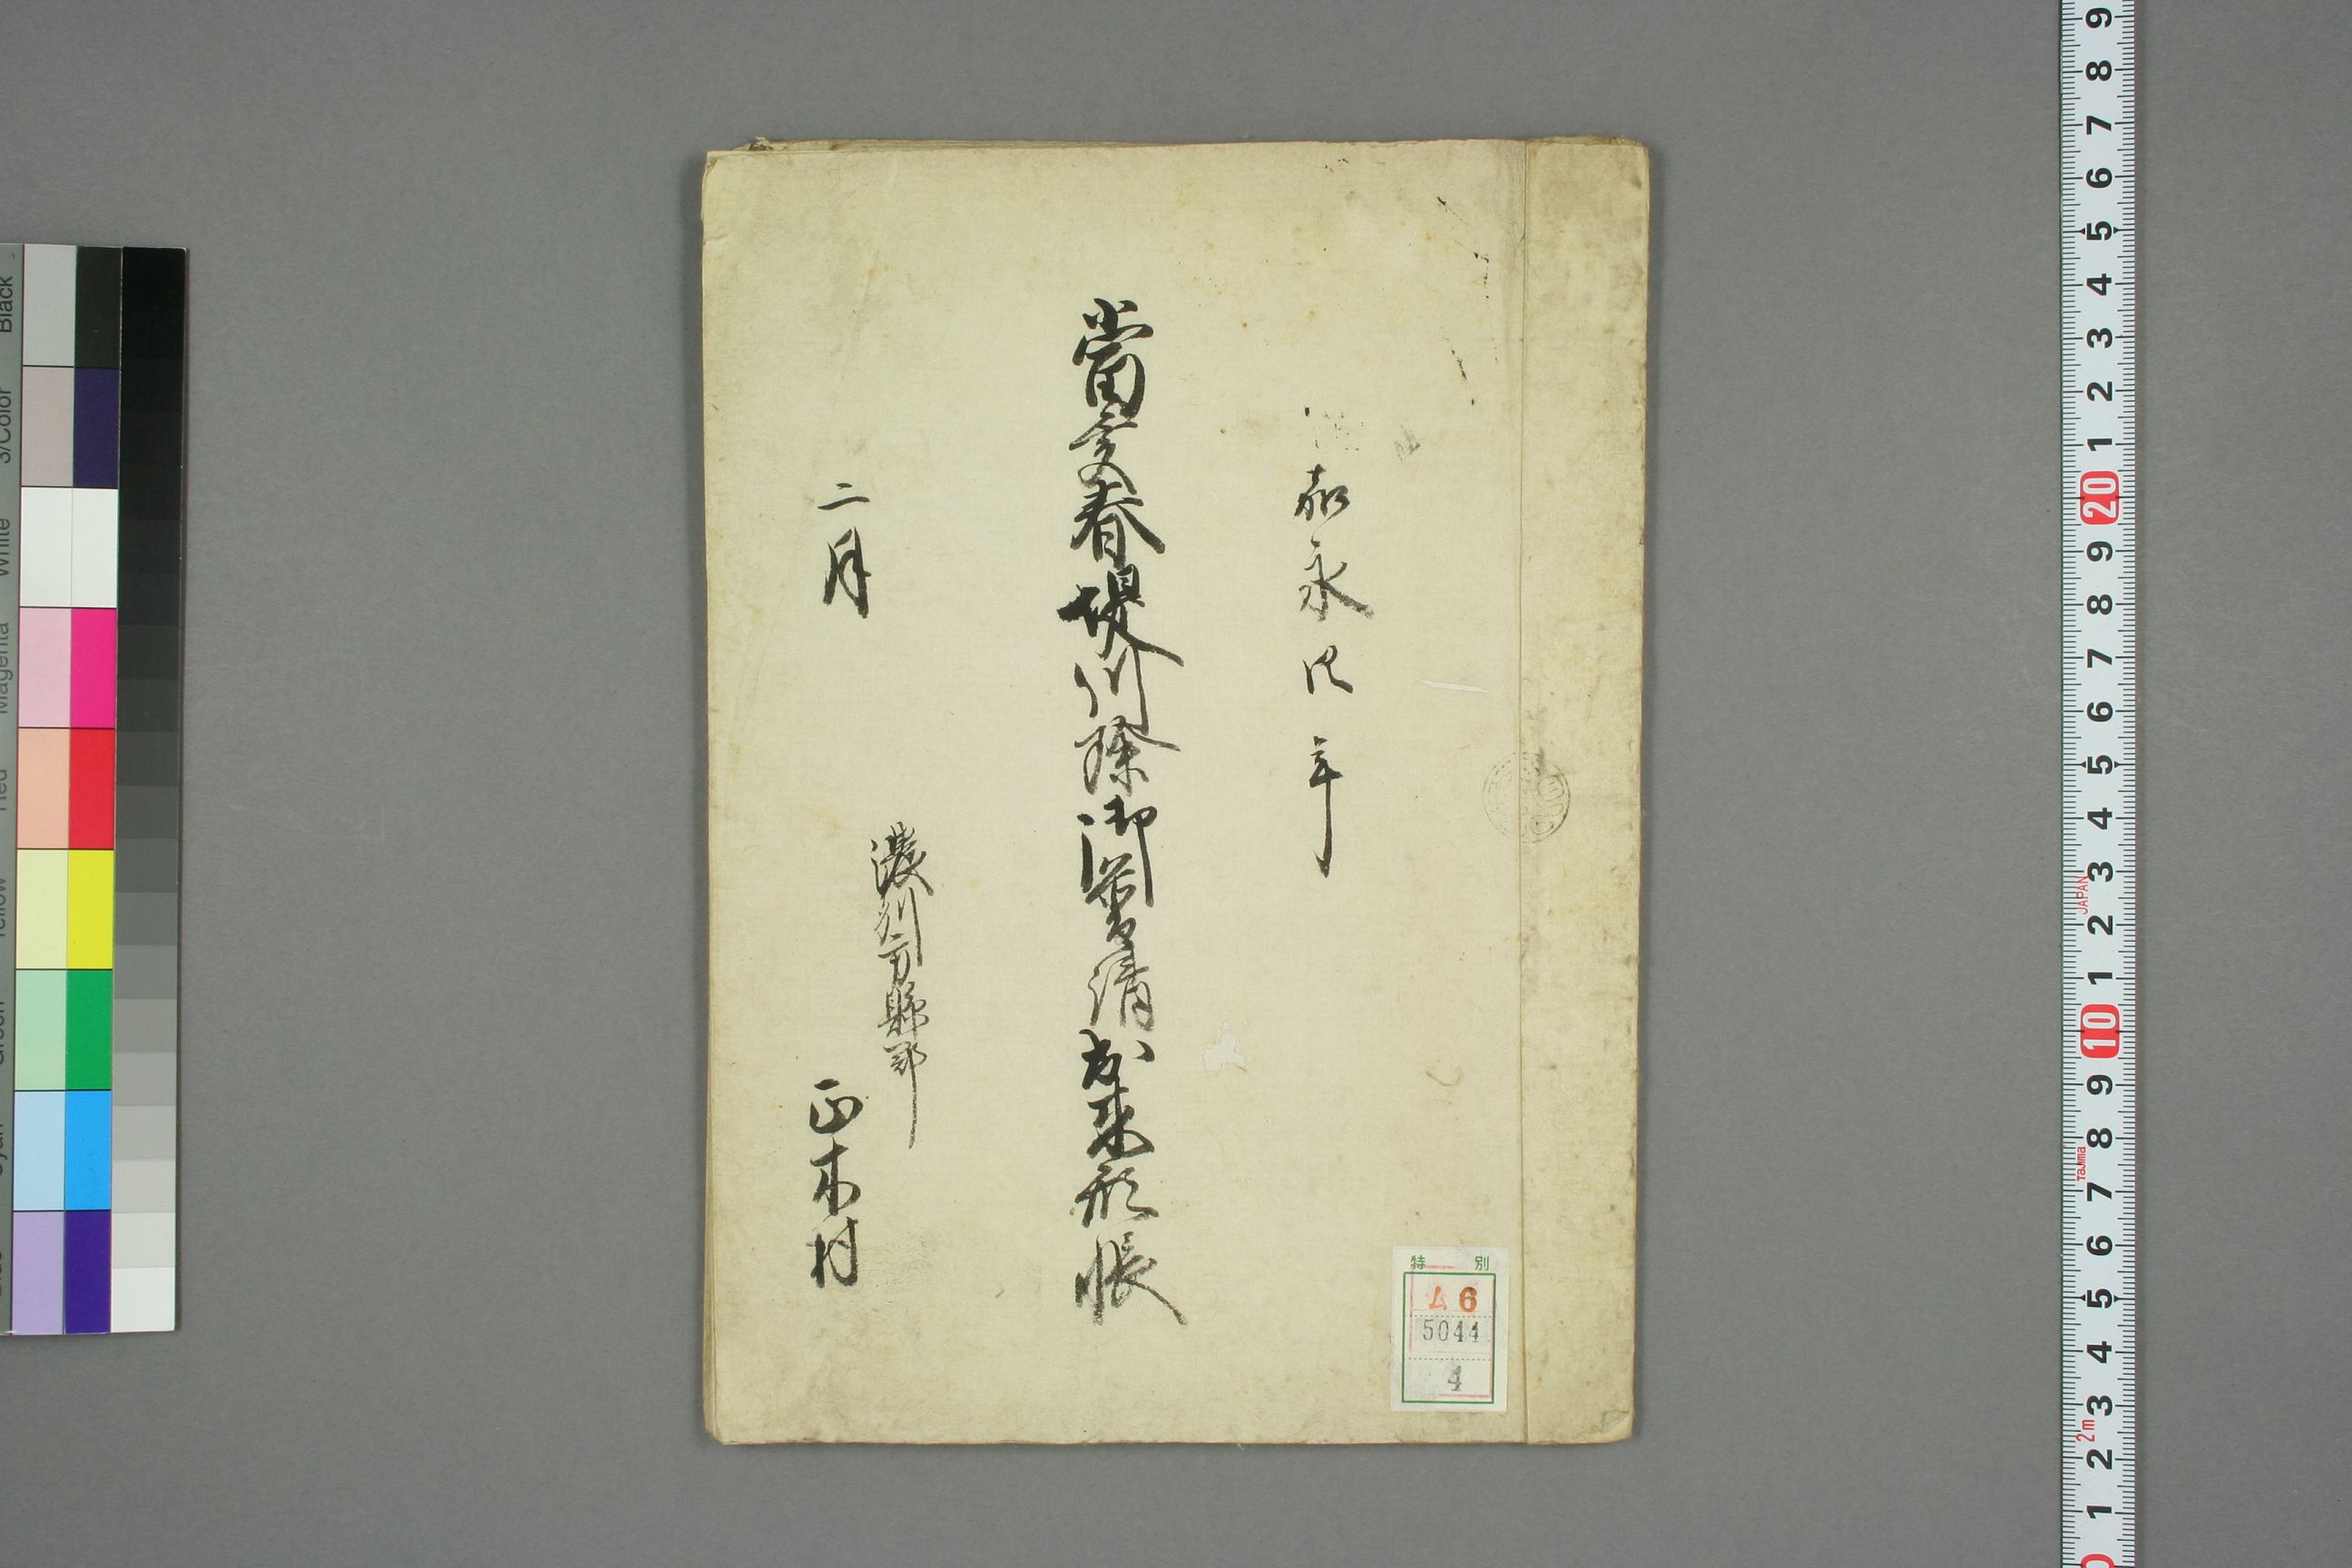 嘉永四年
當亥春堤川除御普請出来形帳
二月
濃州方縣郡
正木村
特別
ム6
5044
4
Black
3/Color
White
Magenta
Red
Yellow
Green
Cyan
9 8 7 6 5 4 3 2 1 20 9 8 7 6 5 4 3 2 1 10 9 8 7 6 5 4 3 2 1 0
JAPAN
Tajima
2m